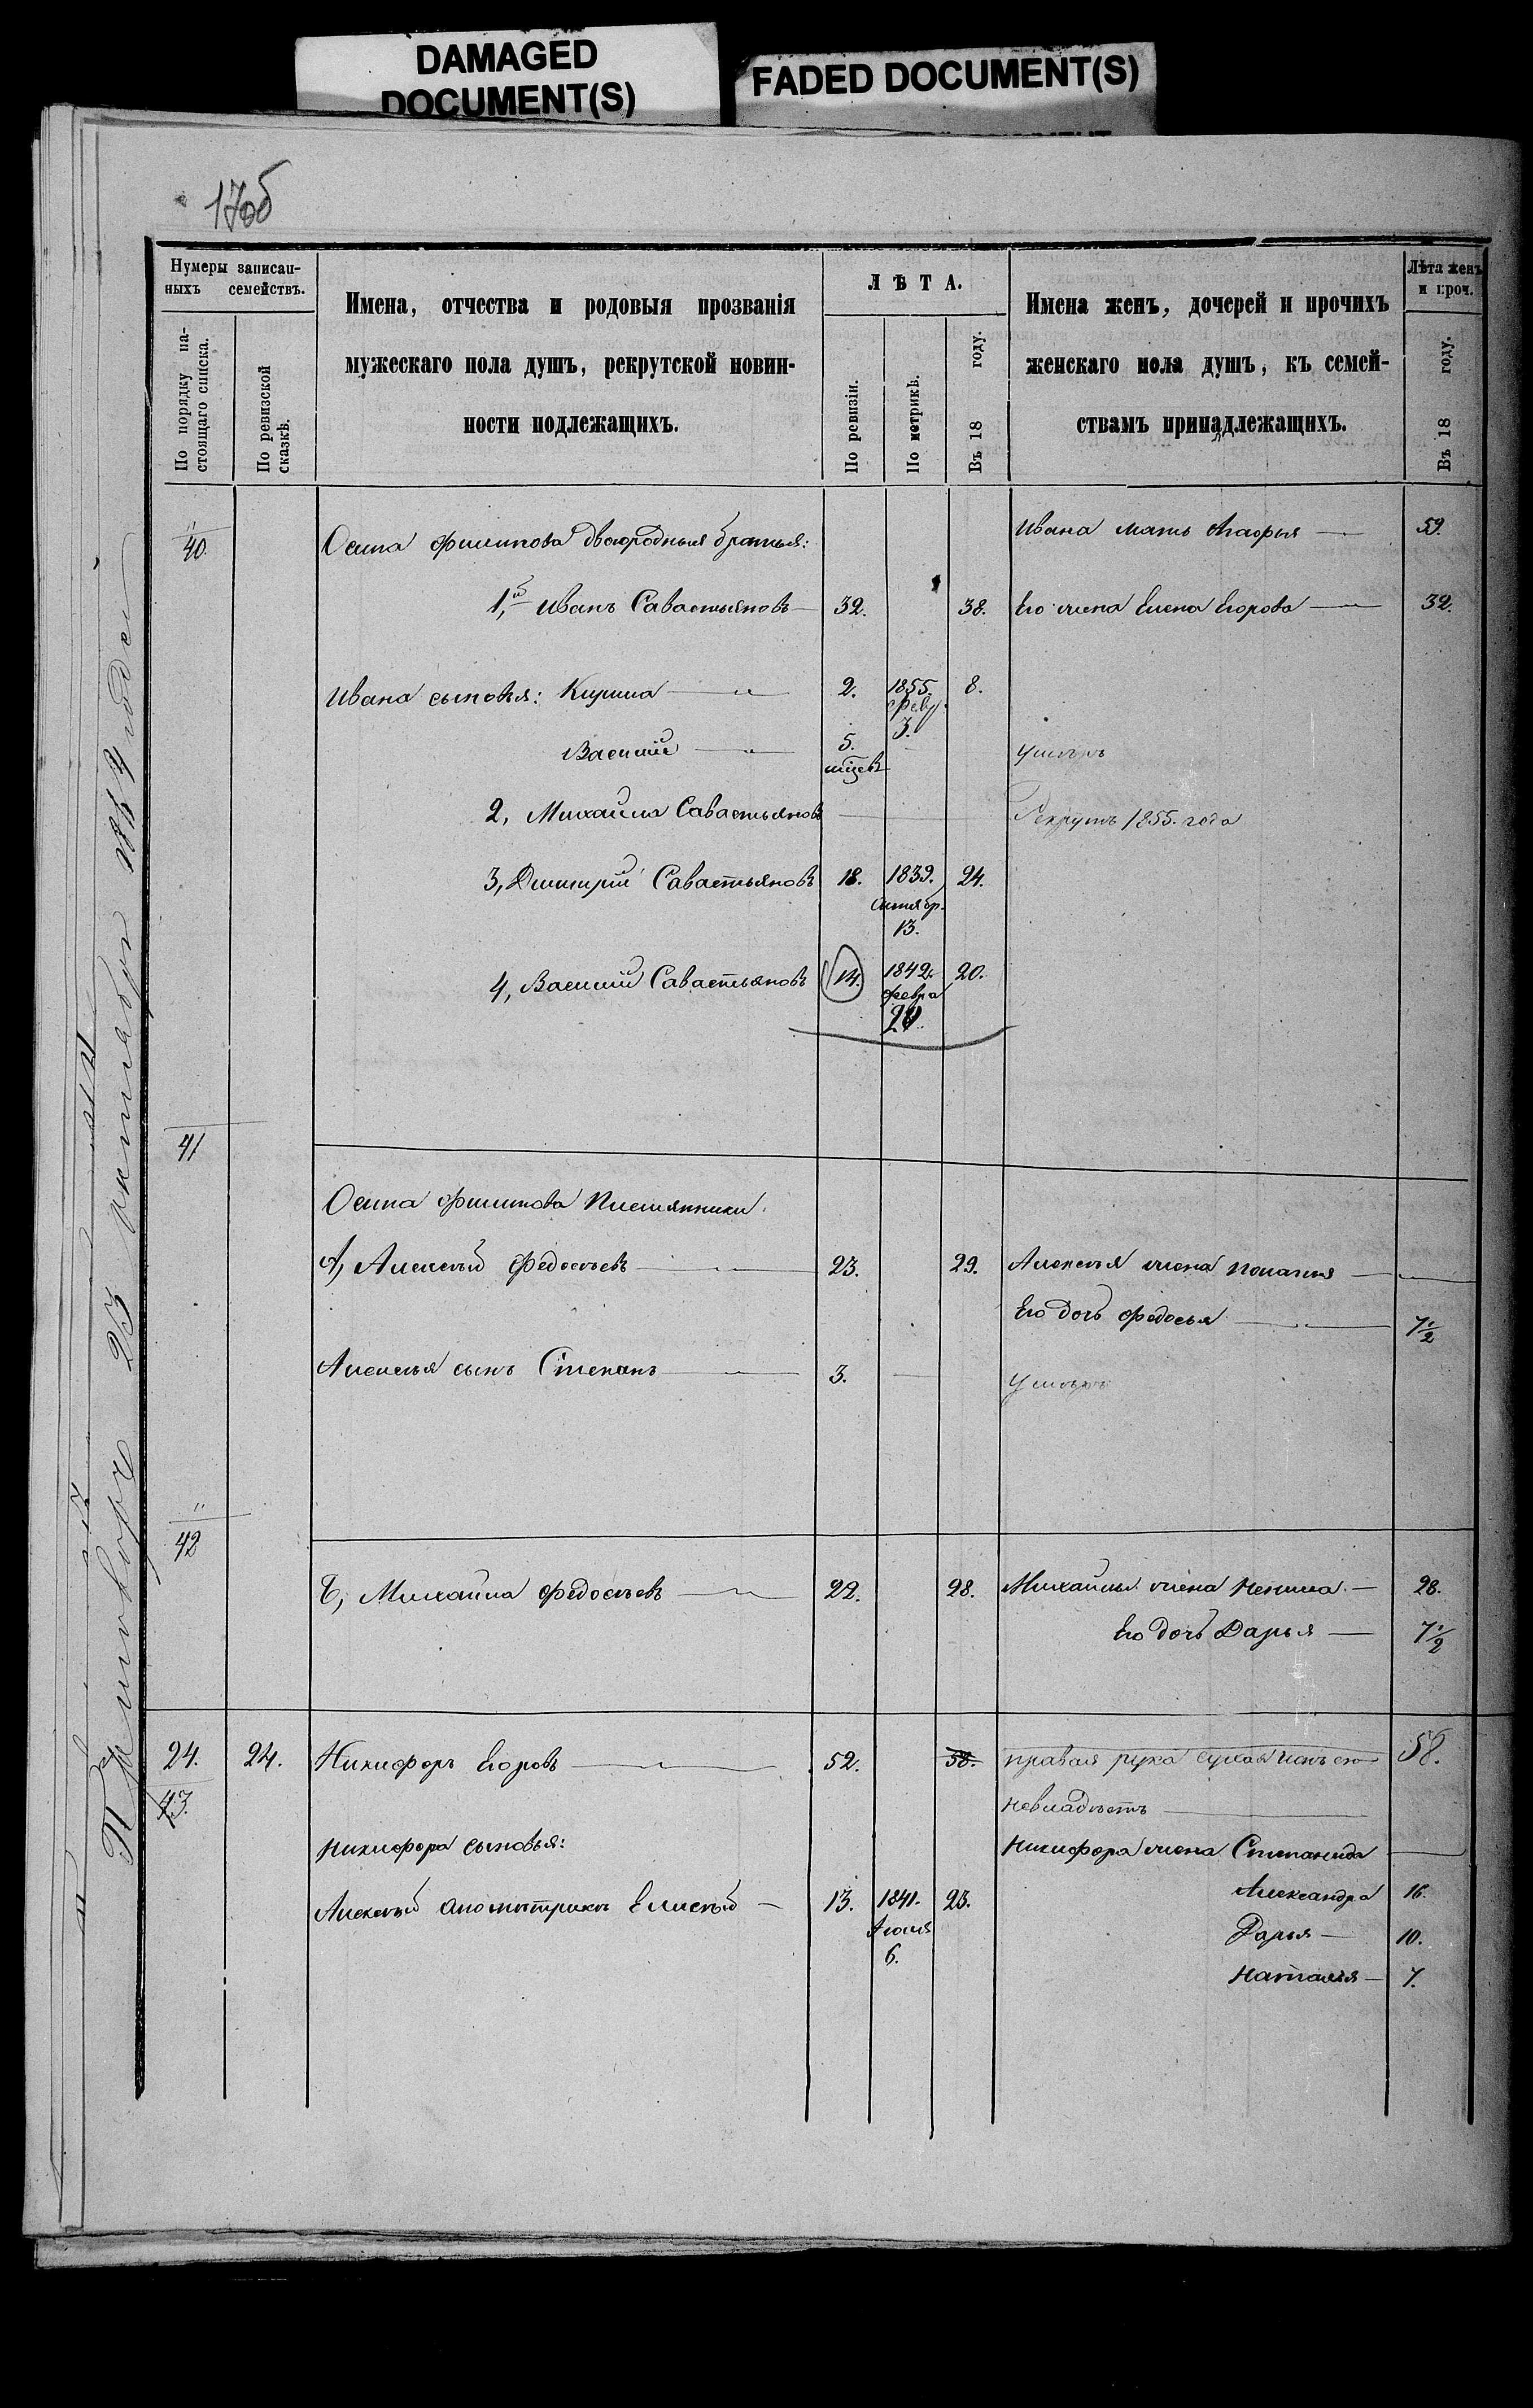 DAMAGED
DOCUMENT(S)
FADED DOCUMENT(S)
17об
Нумеры записан-
ныхъ семействъ.
По порядку на-
стоящаго списка.
По ревизской
сказкѣ.
Имена, отчества и родовыя прозванія
мужескаго пола душъ, рекрутской повин-
ности подлежащихъ.
ЛѢТА.
По ревизіи.
По метрикѣ.
Въ 18 году.
Имена женъ, дочерей и прочихъ
женскаго пола душъ, къ семей-
ствамъ принадлежащихъ.
Лѣта женъ
и проч.
Въ 18 году.
40. Осипа Филипова двоюродныя братья: Ивана мать Агафья 59.
1,й Иванъ Савастьяновъ 32. 38. Его жена Елена Егорова 32.
Ивана сыновья: Кирила 2. 1855. февр. 3. 8.
Василий 5. мцевъ умеръ
2, Михайла Савастьяновъ Рекрутъ 1855. года
3, Дмитрий Савастьяновъ 18. 1839. Октябр. 13. 24.
4, Василий Савастьяновъ 14. 1842. февра 20.
41
Осипа Филипова племянники.
А, Алексѣй Федосѣевъ 23. 29. Алексѣя жена Пелагея
Его дочь Федосья 7 1/2
Алексѣя сынъ Степанъ 3. умеръ
42
Б, Михайла Федосѣевъ 22. 28. Михайлы жена Ненила 28.
Его дочь Дарья 7 1/2
24. 24. Никифоръ Егоровъ 52. 58. правая рука 58.
43. невладѣетъ
Никифора сыновья: Никифора жена Степанида
Алексѣй апометрикѣ Елисѣй 13. 1841. Июня 6. 23. Александра 16.
Дарья 10.
Наталья 7.